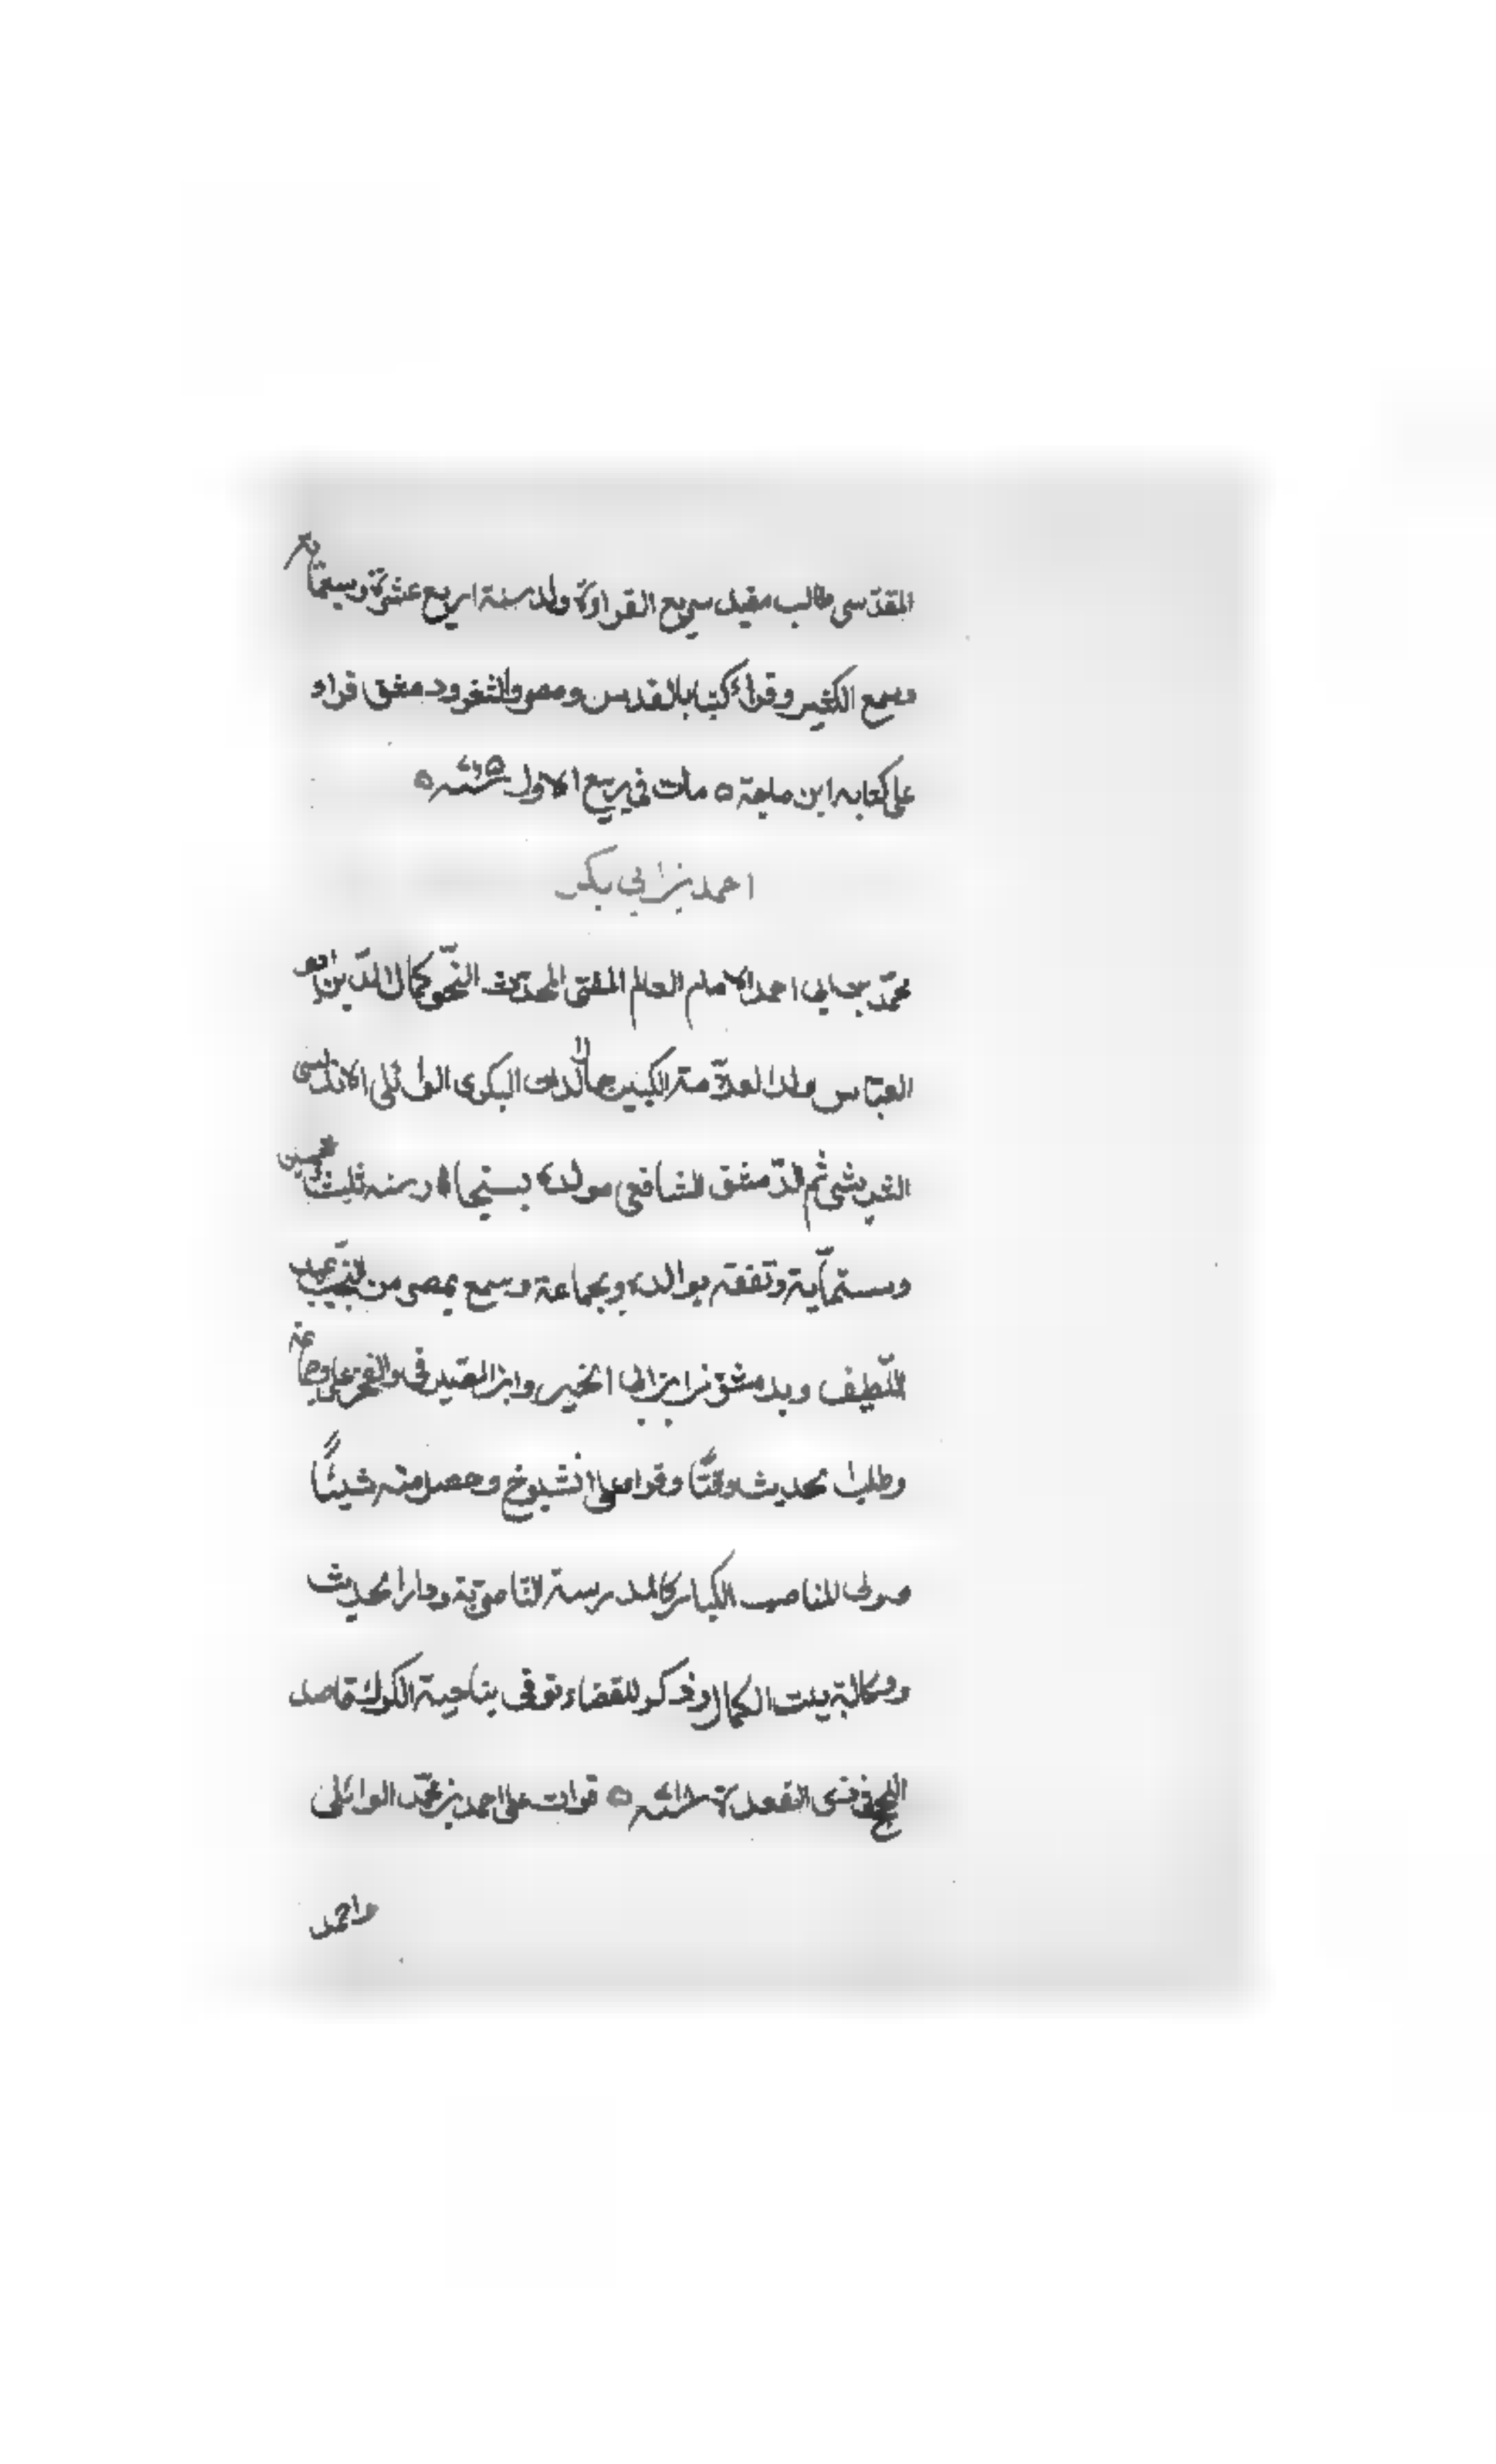 المقدسى طالب مفيد سريع القراءة ولد سنة اربع عشرة وسبعمائة
وسمع الكثير وقراء كتبا بالقدس ومصر والثغر ودمشق قراء
على كتابه ابن ماجة ٥ مات فى ربيع الاول سنة
احمد بن ابي بكر
محمد بن ابى احمد الامام العالم المفتى المحدث النحوى كمال الدين ابو
العباس ولد العلامة الكبير جمال الدين البكرى الوائلى الاندلسى
الشريشى ثم الدمشق الشافعى مولده بسنجار سنه ثلث وخمسين
وستمآية وتفقه بوالده وبجماعة وسمع بمصر من النجيب عبد
اللطيف وبدمشق من ابن ابى الخير وابن الصيرفى والفخر على وجماعة
وطلب الحديث وقتًا وقرا على الشيوخ وحصل منه شيئًا
وولى المناصب الكبار كالمدرسة الناصرية ودار الحديث
ووكالة بيت المال وذكر للقضاء وتوفى بناحية الكرك قاصد
الحج فى ذى القعدة سنة ٥ قرات على احمد بن محمد الوائلى
واحمد